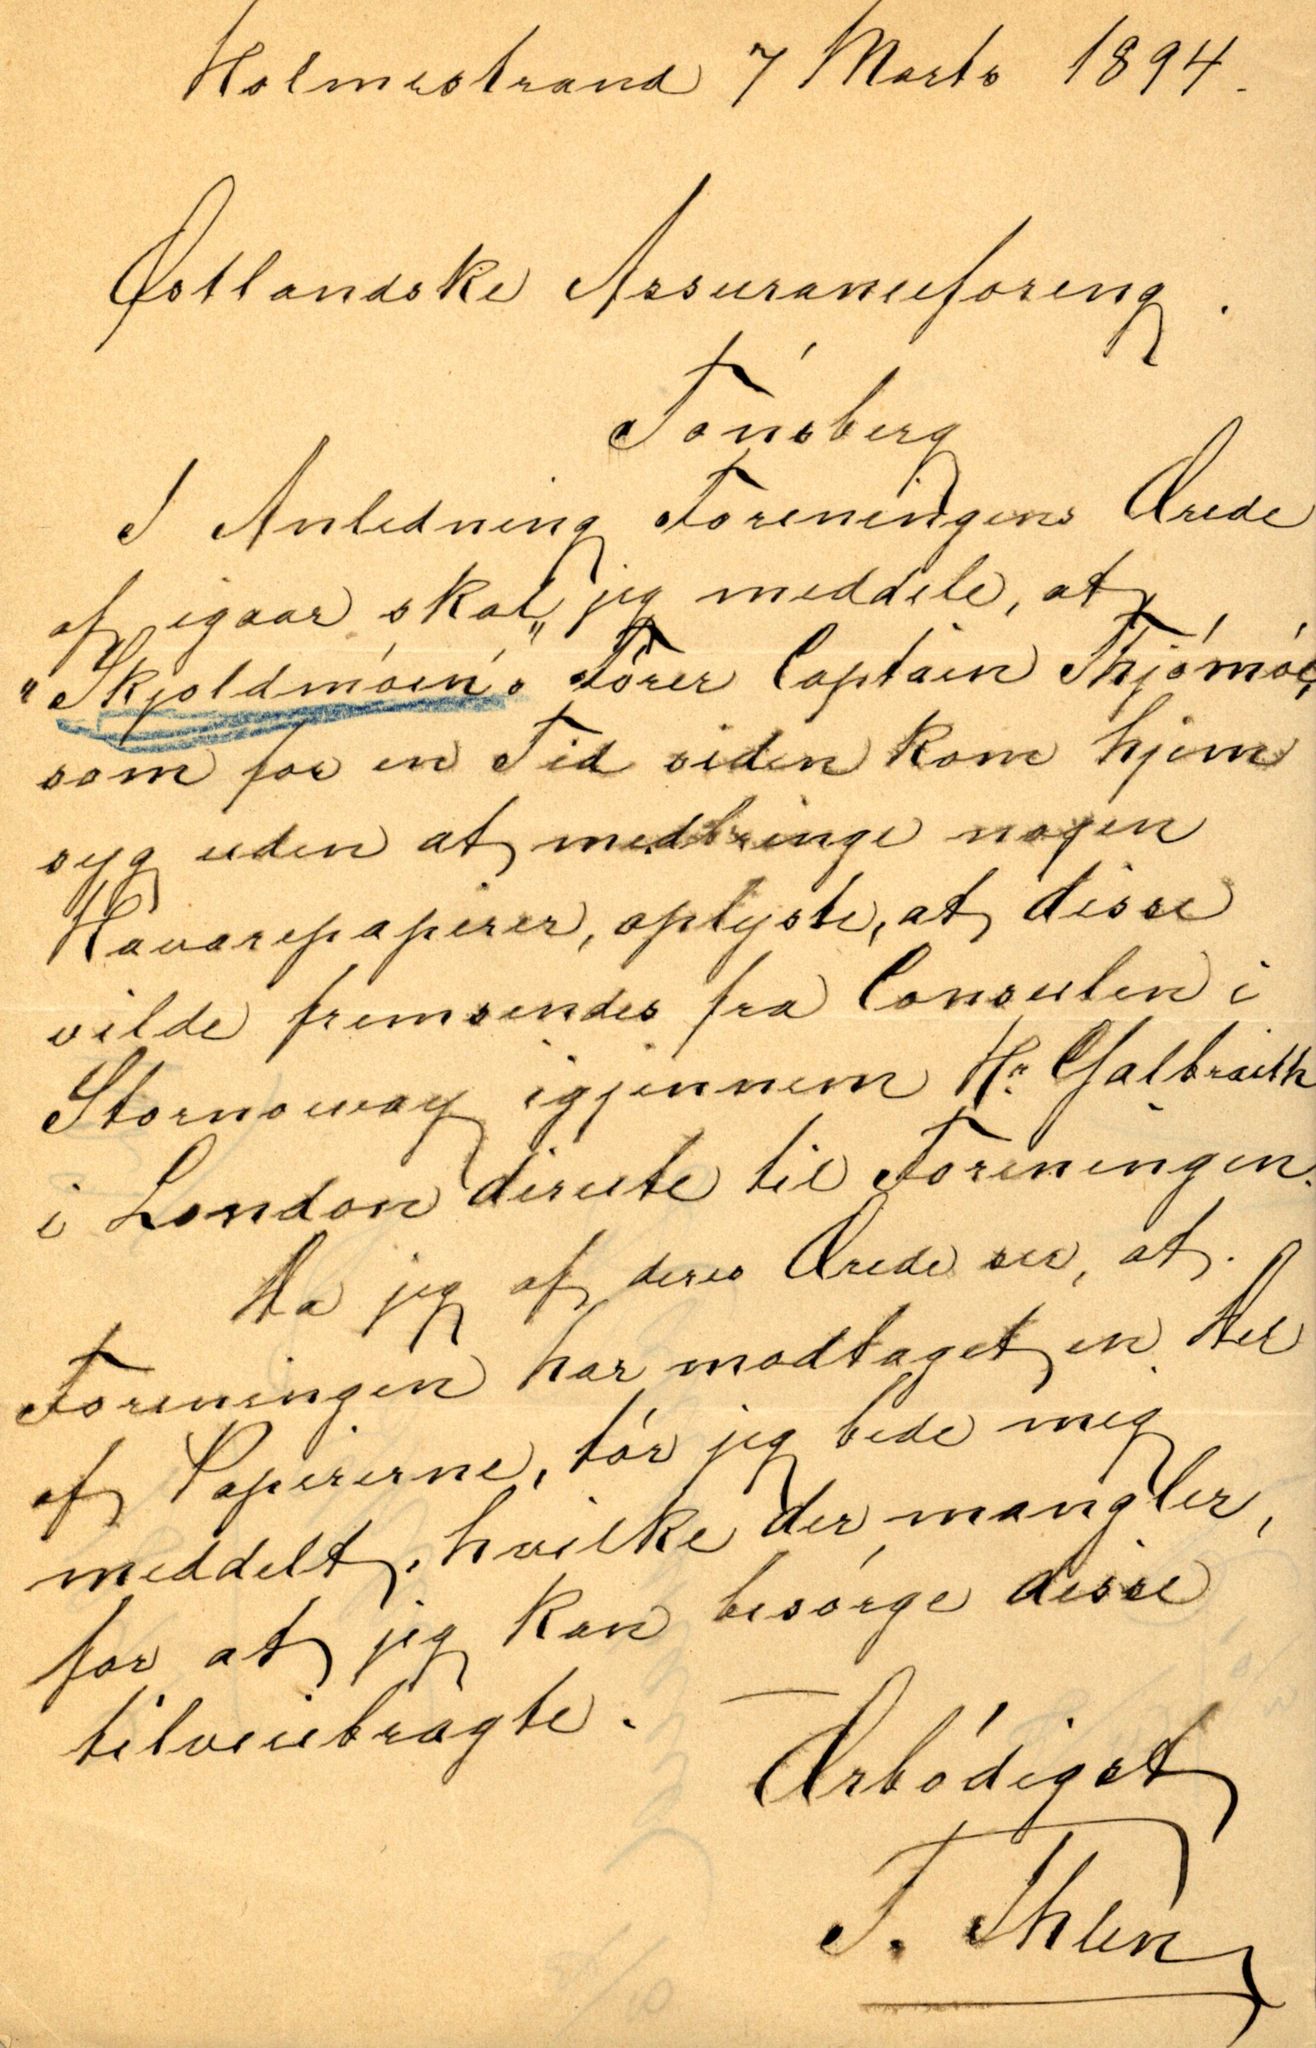 Holmestrand 7 Marts 1894.
Østlandske Assuranceforeng.
Tónsberg
I Anledning Foreningens Ærede
af igaar skal jeg meddele, at
"Skjoldmóen"s Fórer Captain Thjómóe,
som for en Tid siden kom hjem
syg uden at medbringe nogen
Havarepapirer, oplyste, at disse
vilde fremsendes fra Consulen i
Stornoway igjennem Hr. Galbraith
i London directe til Foreningen.
Da jeg af deres Ærede ser, at
Foreningen har modtaget en Del
af Papirerne, tór jeg bede mig
meddelt, hvilke der mangler,
for at jeg kan besórge disse
tilveiebragte.
Ærbódigst
F. Ihlen